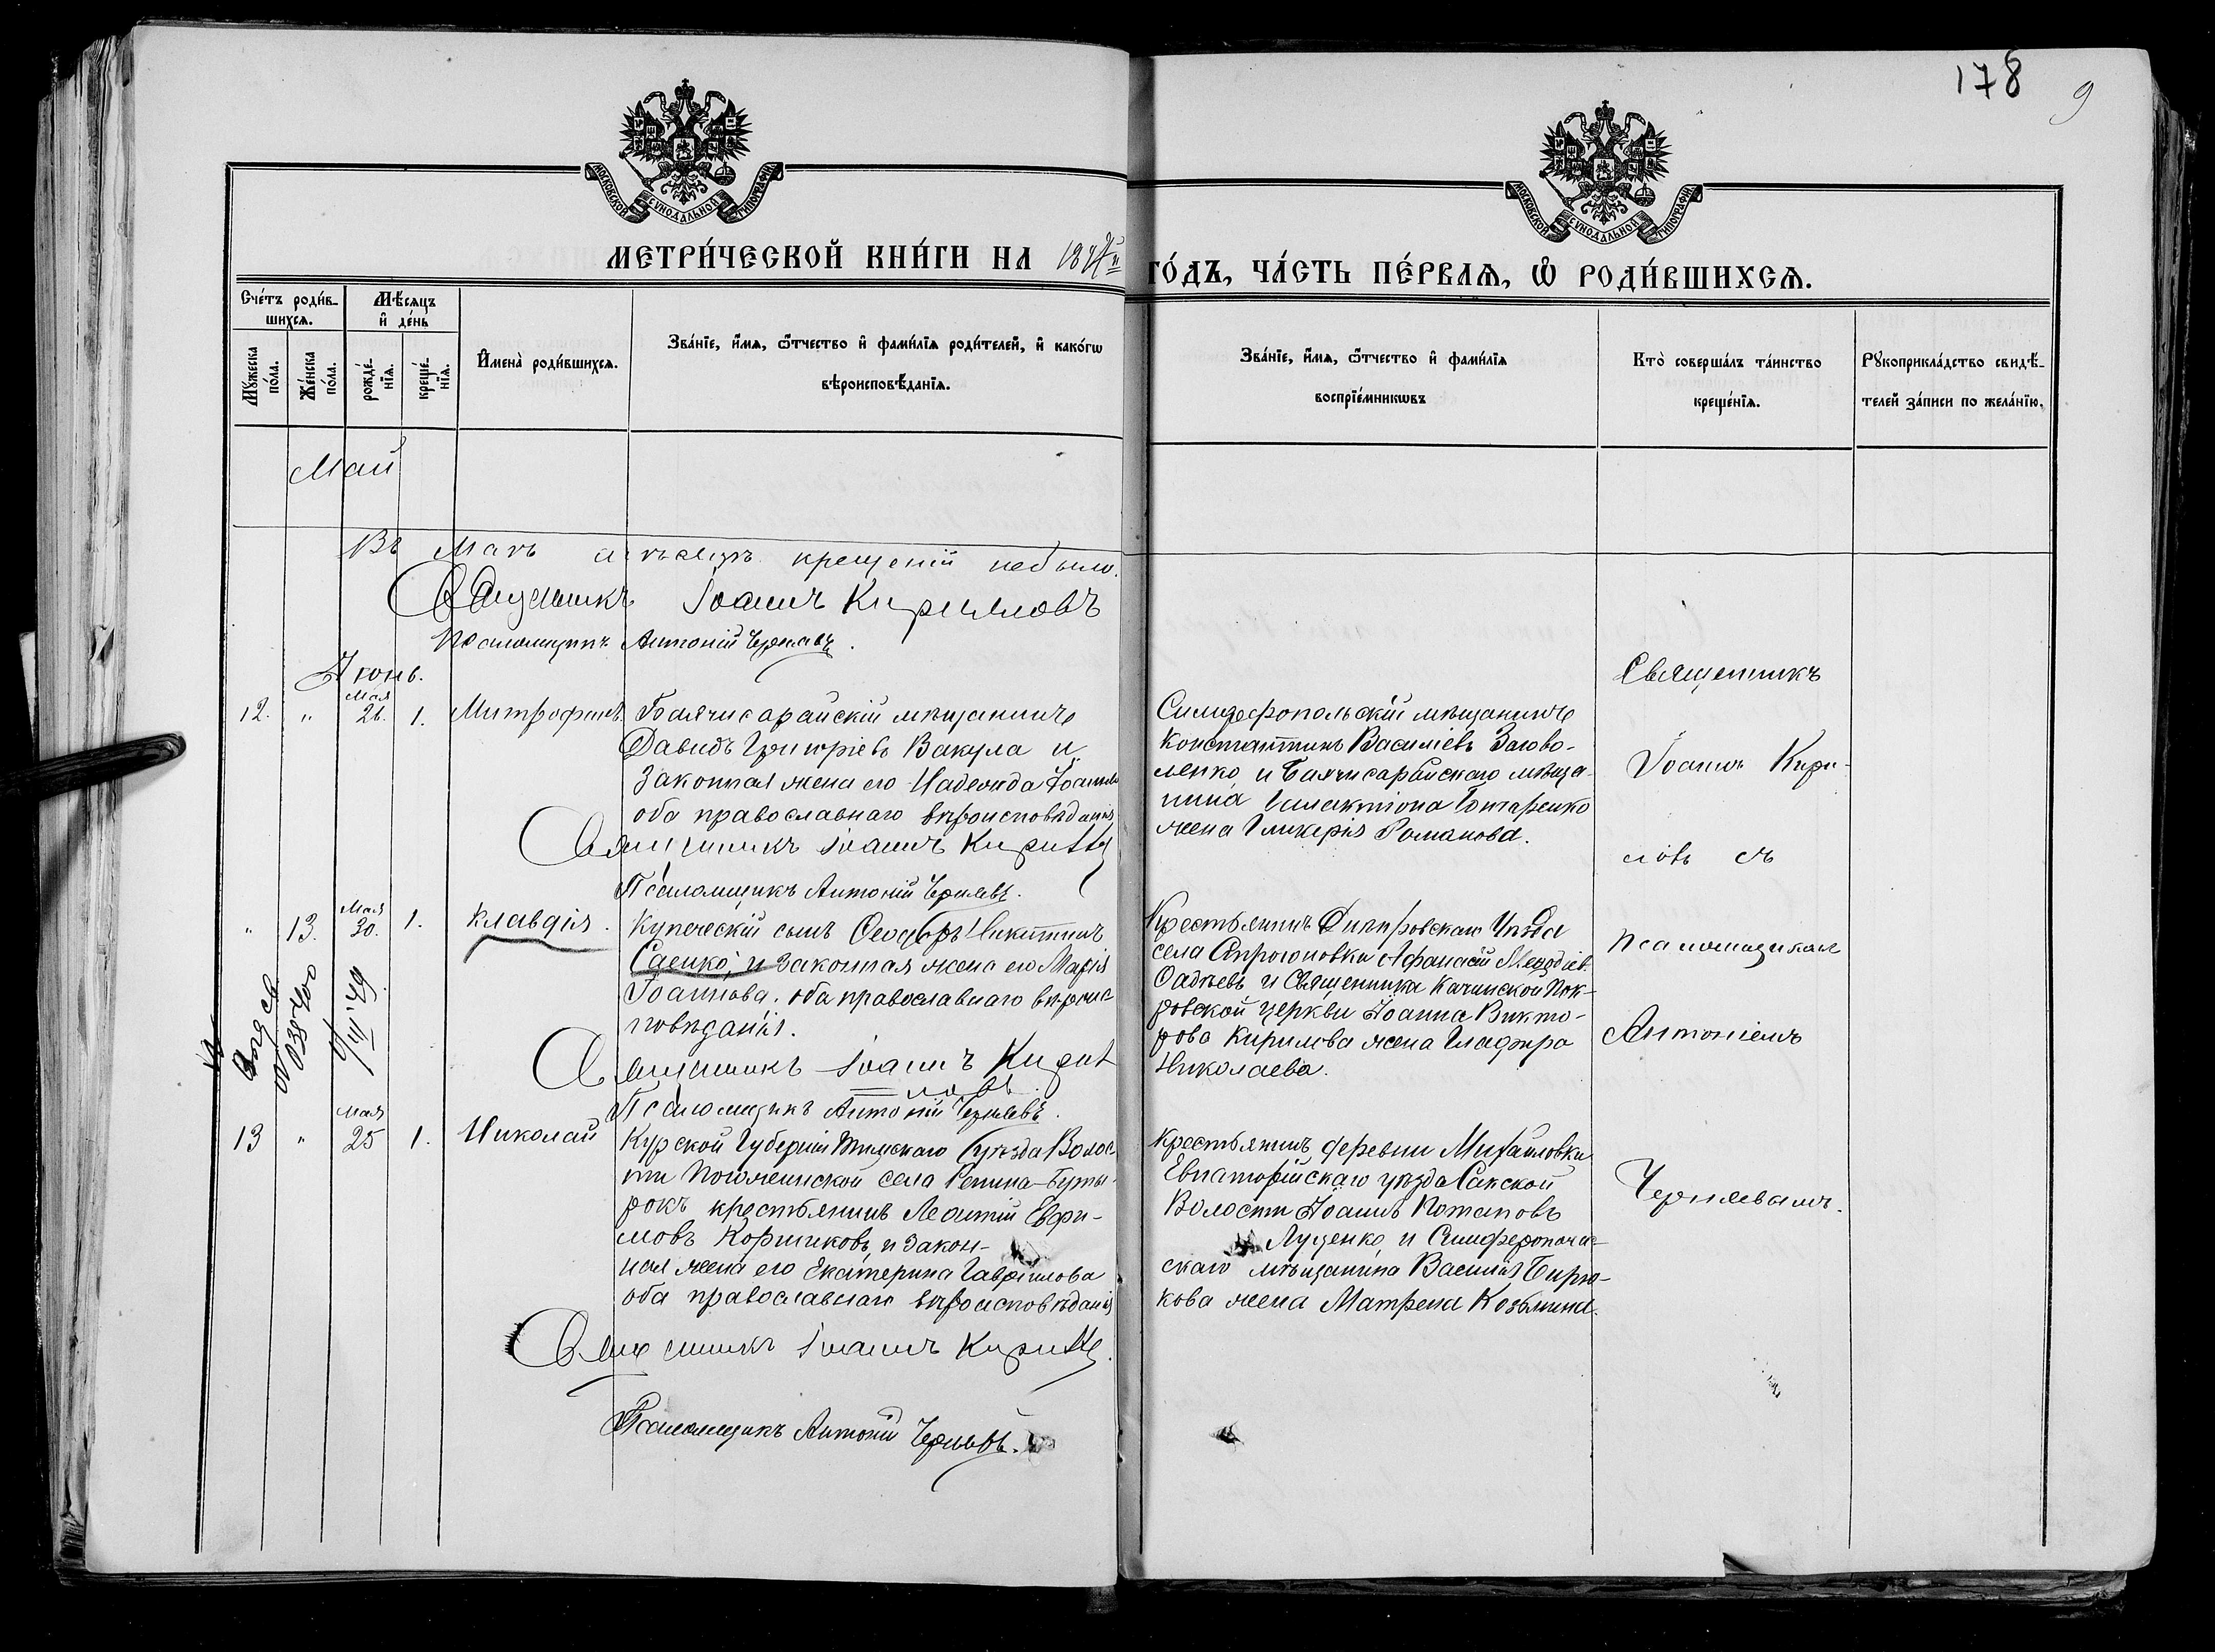 178 9
МОСКОВСКОЙ СУНОДАЛЬНОЙ ТИПОГРАФІИ
МОСКОВСКОЙ СУНОДАЛЬНОЙ ТИПОГРАФІИ
МЕТРИ́ЧЕСКОЙ КНИ́ГИ НА
ГО́ДЪ, ЧА́СТЬ ПЕ́РВАѦ, Ѿ РОДИ́ВШИХСѦ.
Сче́тъ роди́в-
шихсѧ.
Мѣ́сѧцъ
и҆ де́нь
Мꙋ́жеска
по́ла.
Же́нска
по́ла.
рожде́-
нїѧ.
креще́-
нїѧ.
И҆мена̀ роди́вшихсѧ.
Зва́нїе, и҆́мѧ, ѻ҆́тчество и҆ фами́лїѧ роди́телей, и҆ како́гѡ
вѣроисповѣ́данїѧ.
Зва́нїе, и҆́мѧ, ѻ҆́тчество и҆ фами́лїѧ
воспрїе́мникѡвъ
Кто̀ соверша́лъ та́инство
креще́нїѧ.
Рꙋкоприкла́дство свидѣ́-
телей за́писи по жела́нїю.
Май
Въ Маѣ мѣсяцѣ крещеній небыло.
Священникъ Іоаннъ Кирилловъ
Псаломщикъ Антоній Чернявъ.
Іюнь.
12. " Мая 26. 1. Митрофанъ.
Бахчисарайскій мѣщанинъ
Давидъ Григоріевъ Вакула и
Законная жена его Надежда Іоаннова
оба православнаго вѣроисповѣданія
Священникъ Іоаннъ
Псаломщикъ Антоній Чернявъ.
Симферопольскій мѣщанинъ
Константинъ Василіевъ Загово-
ленко и Бахчисарайскаго мѣща-
нина Галактіона Гонтаренко
жена Гликерія Романова.
" 13. Мая 30. 1. Клавдія.
Купеческій сынъ Ѳеодоръ Никитинъ
Саенко, и законная жена его Марія
Іоаннова. оба православнаго вѣроис-
повѣданія.
Священникъ Іоаннъ Кирил
ловъ
Псаломщикъ Антоній Чернявъ.
Крестьянинъ Днѣпровскаго Уѣзда
села Афанасій Меѳодіевъ
Ѳадѣевъ и Священника Качинской Пок-
ровской церкви Іоанна Викто-
рова Кирилова жена Глафира
Николаева.
13 " Мая 25 1. Николай
Курской Губерніи Тимскаго уѣзда Волос-
ти села Репина-Буты-
рокъ крестьянинъ Леонтій Евфи-
мовъ Коршиковъ, и закон-
ная жена его Екатерина Гавріилова
оба православнаго вѣроисповѣданія
Священникъ Іоаннъ
Псаломщикъ Антоній Чернявъ.
Крестьянинъ деревни Михайловки
Евпаторійскаго уѣзда Сакской
Волости Іоаннъ Потаповъ
Луценко, и Симферополь-
скаго мѣщанина Василія Бирю-
кова жена Матрена Козьмина.
Священникъ
Іоаннъ Кири-
ловъ съ
псаломщикомъ
Антоніемъ
Чернявамъ.